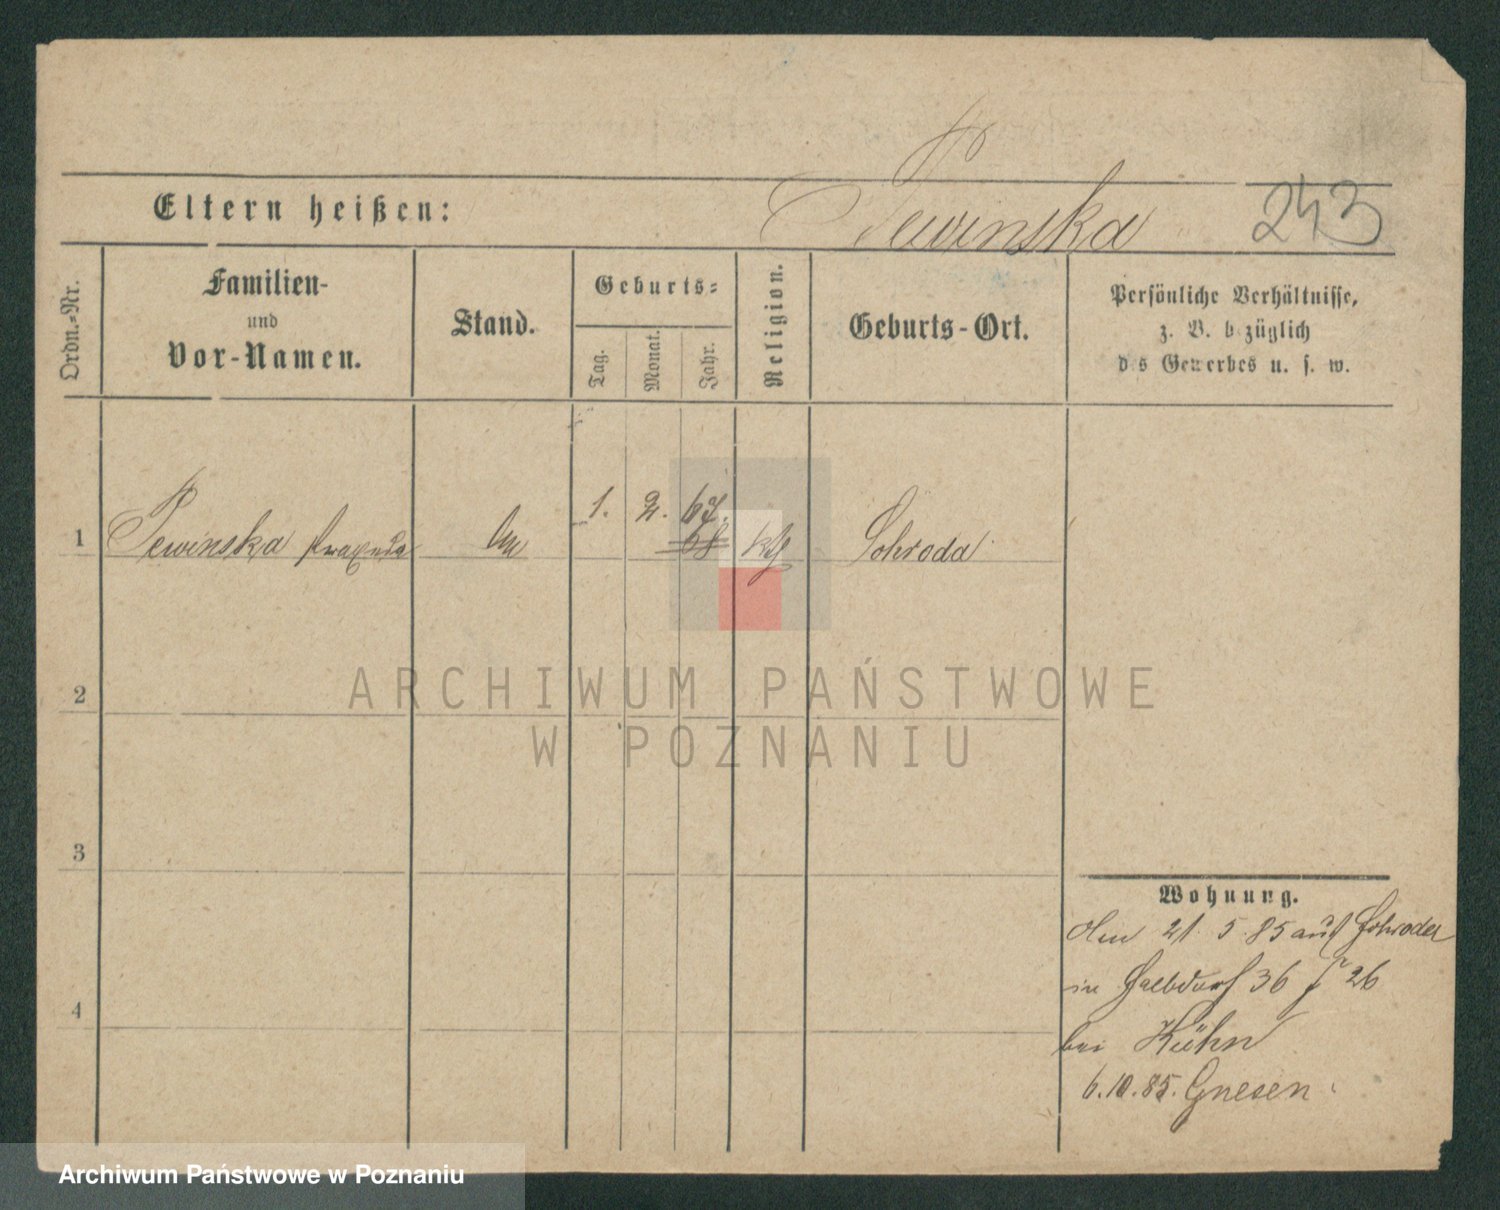 Eltern heißen:
Pewinska
243
Ordn.-Nr.
Familien-
und
Vor-Namen.
Stand.
Geburts-
Tag.
Monat.
Jahr.
Religion.
Geburts-Ort.
Persönliche Verhältnisse,
z. B. bezüglich
des Gewerbes u. s. w.
1 Pewinska Praxeda 1. 2. 67. 68 kth Schroda
2
3
4
Wohnung.
21. 5. 85 aus Schroda
in Halbdorf 36 26
bei Kühn
6.10.85. Gnesen.
ARCHIWUM PAŃSTWOWE
W POZNANIU
Archiwum Państwowe w Poznaniu